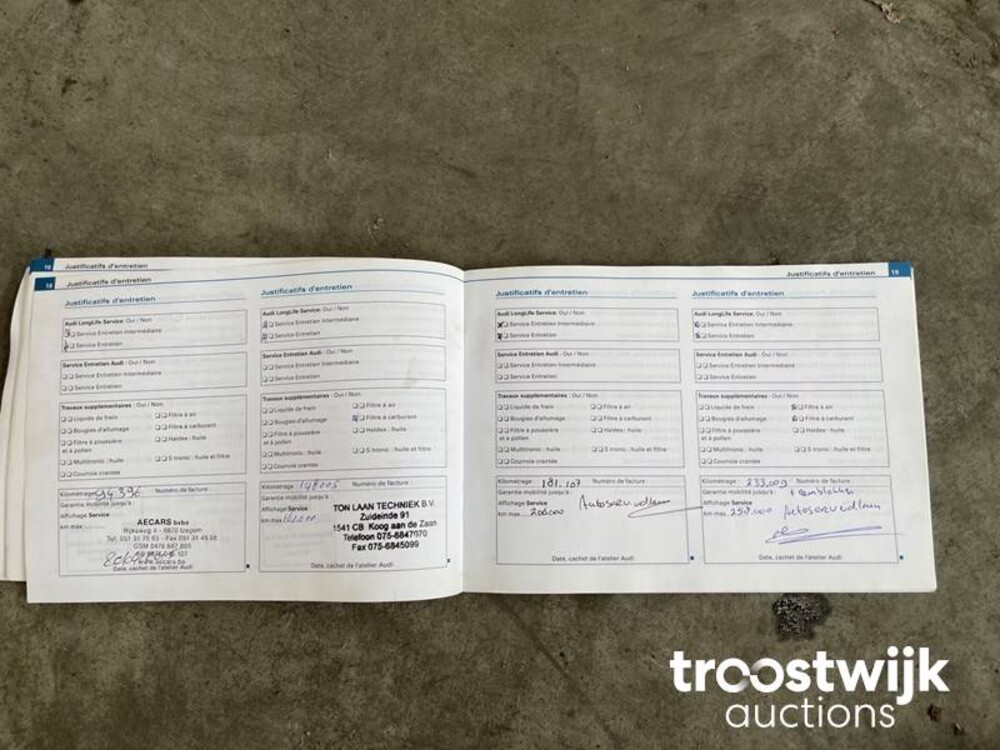 18 Justificatifs d'entretien
18 Justificatifs d'entretien
Justificatifs d'entretien
Audi LongLife Service: Oui / Non
Service Entretien Intermédiaire
Service Entretien
Service Entretien Audi: Oui / Non
Service Entretien Intermédiaire
Service Entretien
Travaux supplémentaires: Oui / Non
Liquide de frein
Filtre à air
Bougies d'allumage
Filtre à carburant
Filtre à poussière
et à pollen
Haldex: huile
Multitronic: huile
S tronic: huile et filtre
Courroie crantée
Kilométrage: 94396 Numéro de facture:
Garantie mobilité jusqu'à:
Affichage Service
km max.
AECARS bvba
Rijksweg 4 - 8870 Izegem
Tel. 051 31 75 63 - Fax 051 31 45 68
Date, cachet de l'atelier Audi
Justificatifs d'entretien
Audi LongLife Service: Oui / Non
Service Entretien Intermédiaire
Service Entretien
Service Entretien Audi: Oui / Non
Service Entretien Intermédiaire
Service Entretien
Travaux supplémentaires: Oui / Non
Liquide de frein
Filtre à air
Bougies d'allumage
Filtre à carburant
Filtre à poussière
et à pollen
Haldex: huile
Multitronic: huile
S tronic: huile et filtre
Courroie crantée
Kilométrage: 148005 Numéro de facture:
Garantie mobilité jusqu'à:
Affichage Service
km max.
TON LAAN TECHNIEK B.V.
Zuideinde 91
1541 CB Koog aan de Zaan
Telefoon 075-6847070
Fax 075-6845099
Date, cachet de l'atelier Audi
Justificatifs d'entretien 19
Justificatifs d'entretien
Audi LongLife Service: Oui / Non
Service Entretien Intermédiaire
Service Entretien
Service Entretien Audi: Oui / Non
Service Entretien Intermédiaire
Service Entretien
Travaux supplémentaires: Oui / Non
Liquide de frein
Filtre à air
Bougies d'allumage
Filtre à carburant
Filtre à poussière
et à pollen
Haldex: huile
Multitronic: huile
S tronic: huile et filtre
Courroie crantée
Kilométrage: 181.107 Numéro de facture:
Garantie mobilité jusqu'à:
Affichage Service
km max. 200.000
Date, cachet de l'atelier Audi
Justificatifs d'entretien
Audi LongLife Service: Oui / Non
Service Entretien Intermédiaire
Service Entretien
Service Entretien Audi: Oui / Non
Service Entretien Intermédiaire
Service Entretien
Travaux supplémentaires: Oui / Non
Liquide de frein
Filtre à air
Bougies d'allumage
Filtre à carburant
Filtre à poussière
et à pollen
Haldex: huile
Multitronic: huile
S tronic: huile et filtre
Courroie crantée
Kilométrage: 233.009 Numéro de facture:
Garantie mobilité jusqu'à: + remblokken
Affichage Service
km max. 250.000
Date, cachet de l'atelier Audi
troostwijk
auctions